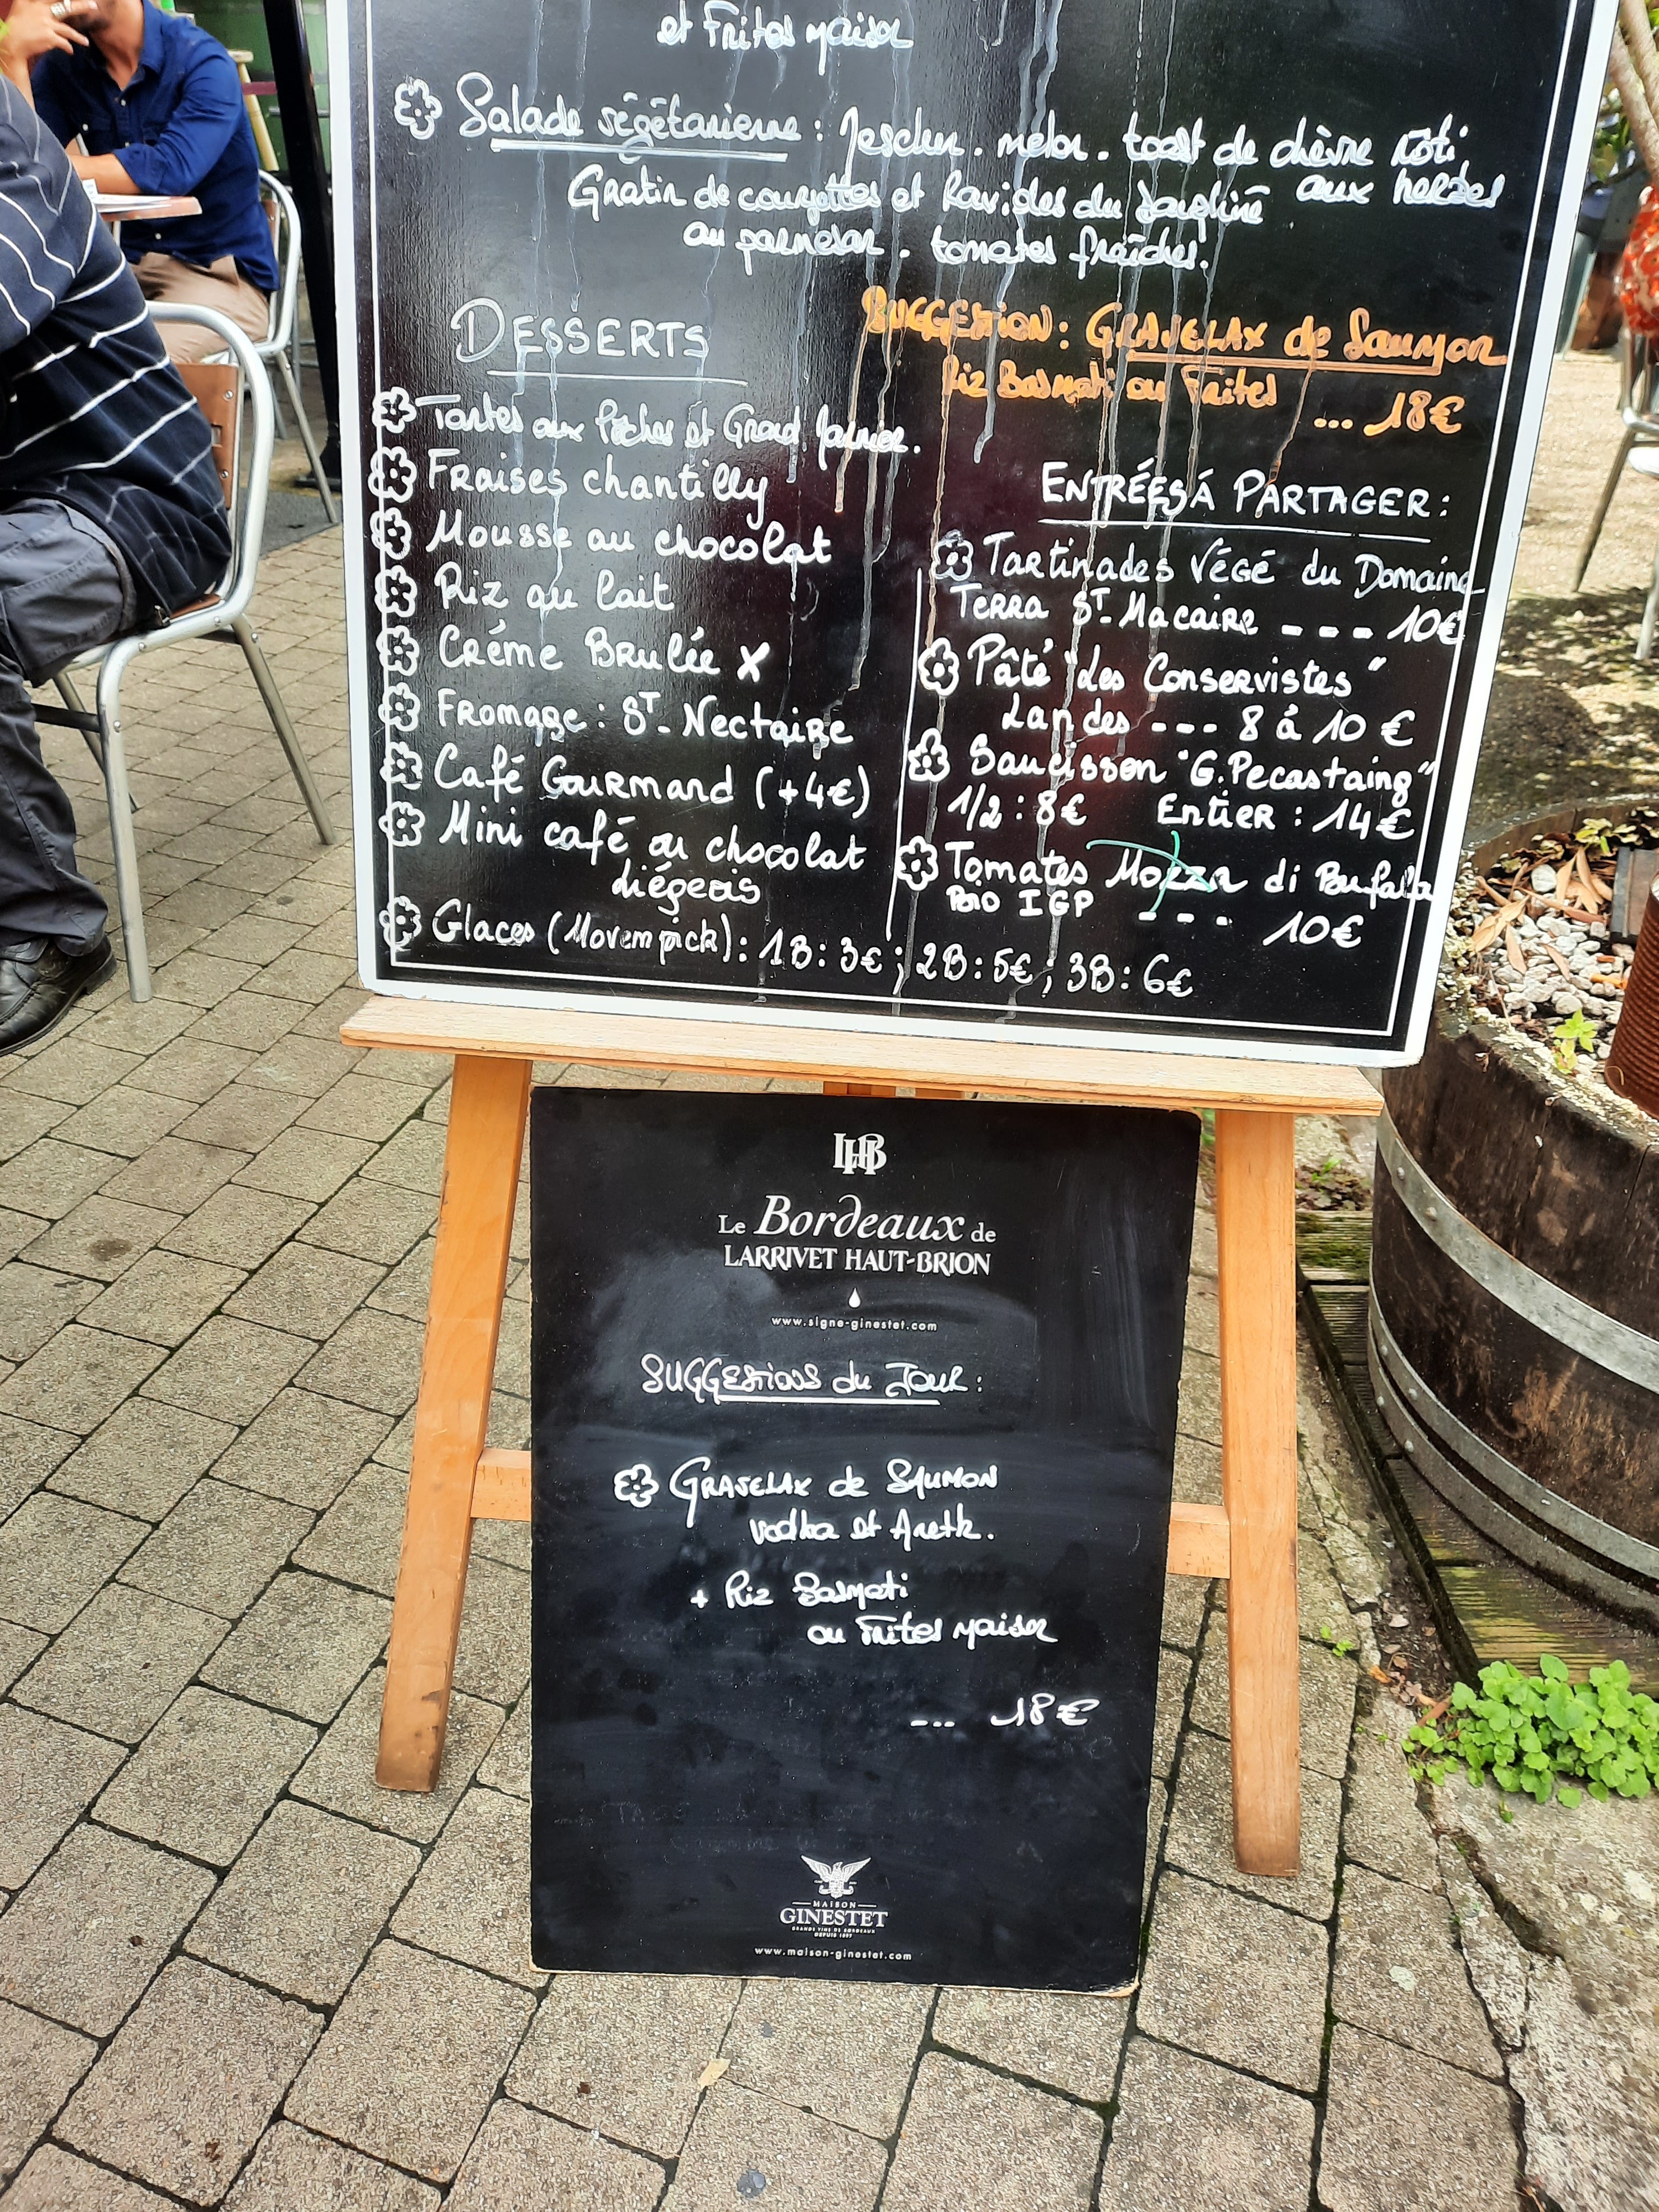 et Frites maison
Salade végétarienne : Jesclun. melon. toast de chèvre rôti
aux herbes
Gratin de courgettes et Ravioles du Dauphiné
au parmesan. tomates fraîches.
DESSERTS
Tartes aux Pêches et Grand Marnier.
Fraises chantilly
Mousse au chocolat
Riz au lait
Créme BRulée X
FRomage : ST-NectaiRe
Café GouRmand (+4€)
Mini café ou chocolat
liégeois
Glaces (Movempick) : 1B : 3€ ; 2B : 5€ ; 3B : 6€
SUGGESTION : GRAVELAX de Saumon
Riz Basmati ou Frites ... 18€
ENTRÉES À PARTAGER :
TaRtinades Végé du Domaine
TeRRa ST. MacaiRe --- 10€
Pâté "des Conservistes"
Landes --- 8 à 10 €
Saucisson "G. Pecastaing"
1/2 : 8€ EntieR : 14€
Tomates Mozzar di Bufala
Bio IGP --- 10€
LHB
Le Bordeaux de
LARRIVET HAUT-BRION
www.signe-ginestet.com
SUGGESTIONS du JOUR :
GRAVELAX de SAUMON
vodka et Aneth.
+ Riz Basmati
ou Frites maison
... 18€
MAISON
GINESTET
GRANDS VINS DE BORDEAUX
DEPUIS 1897
www.maison-ginestet.com